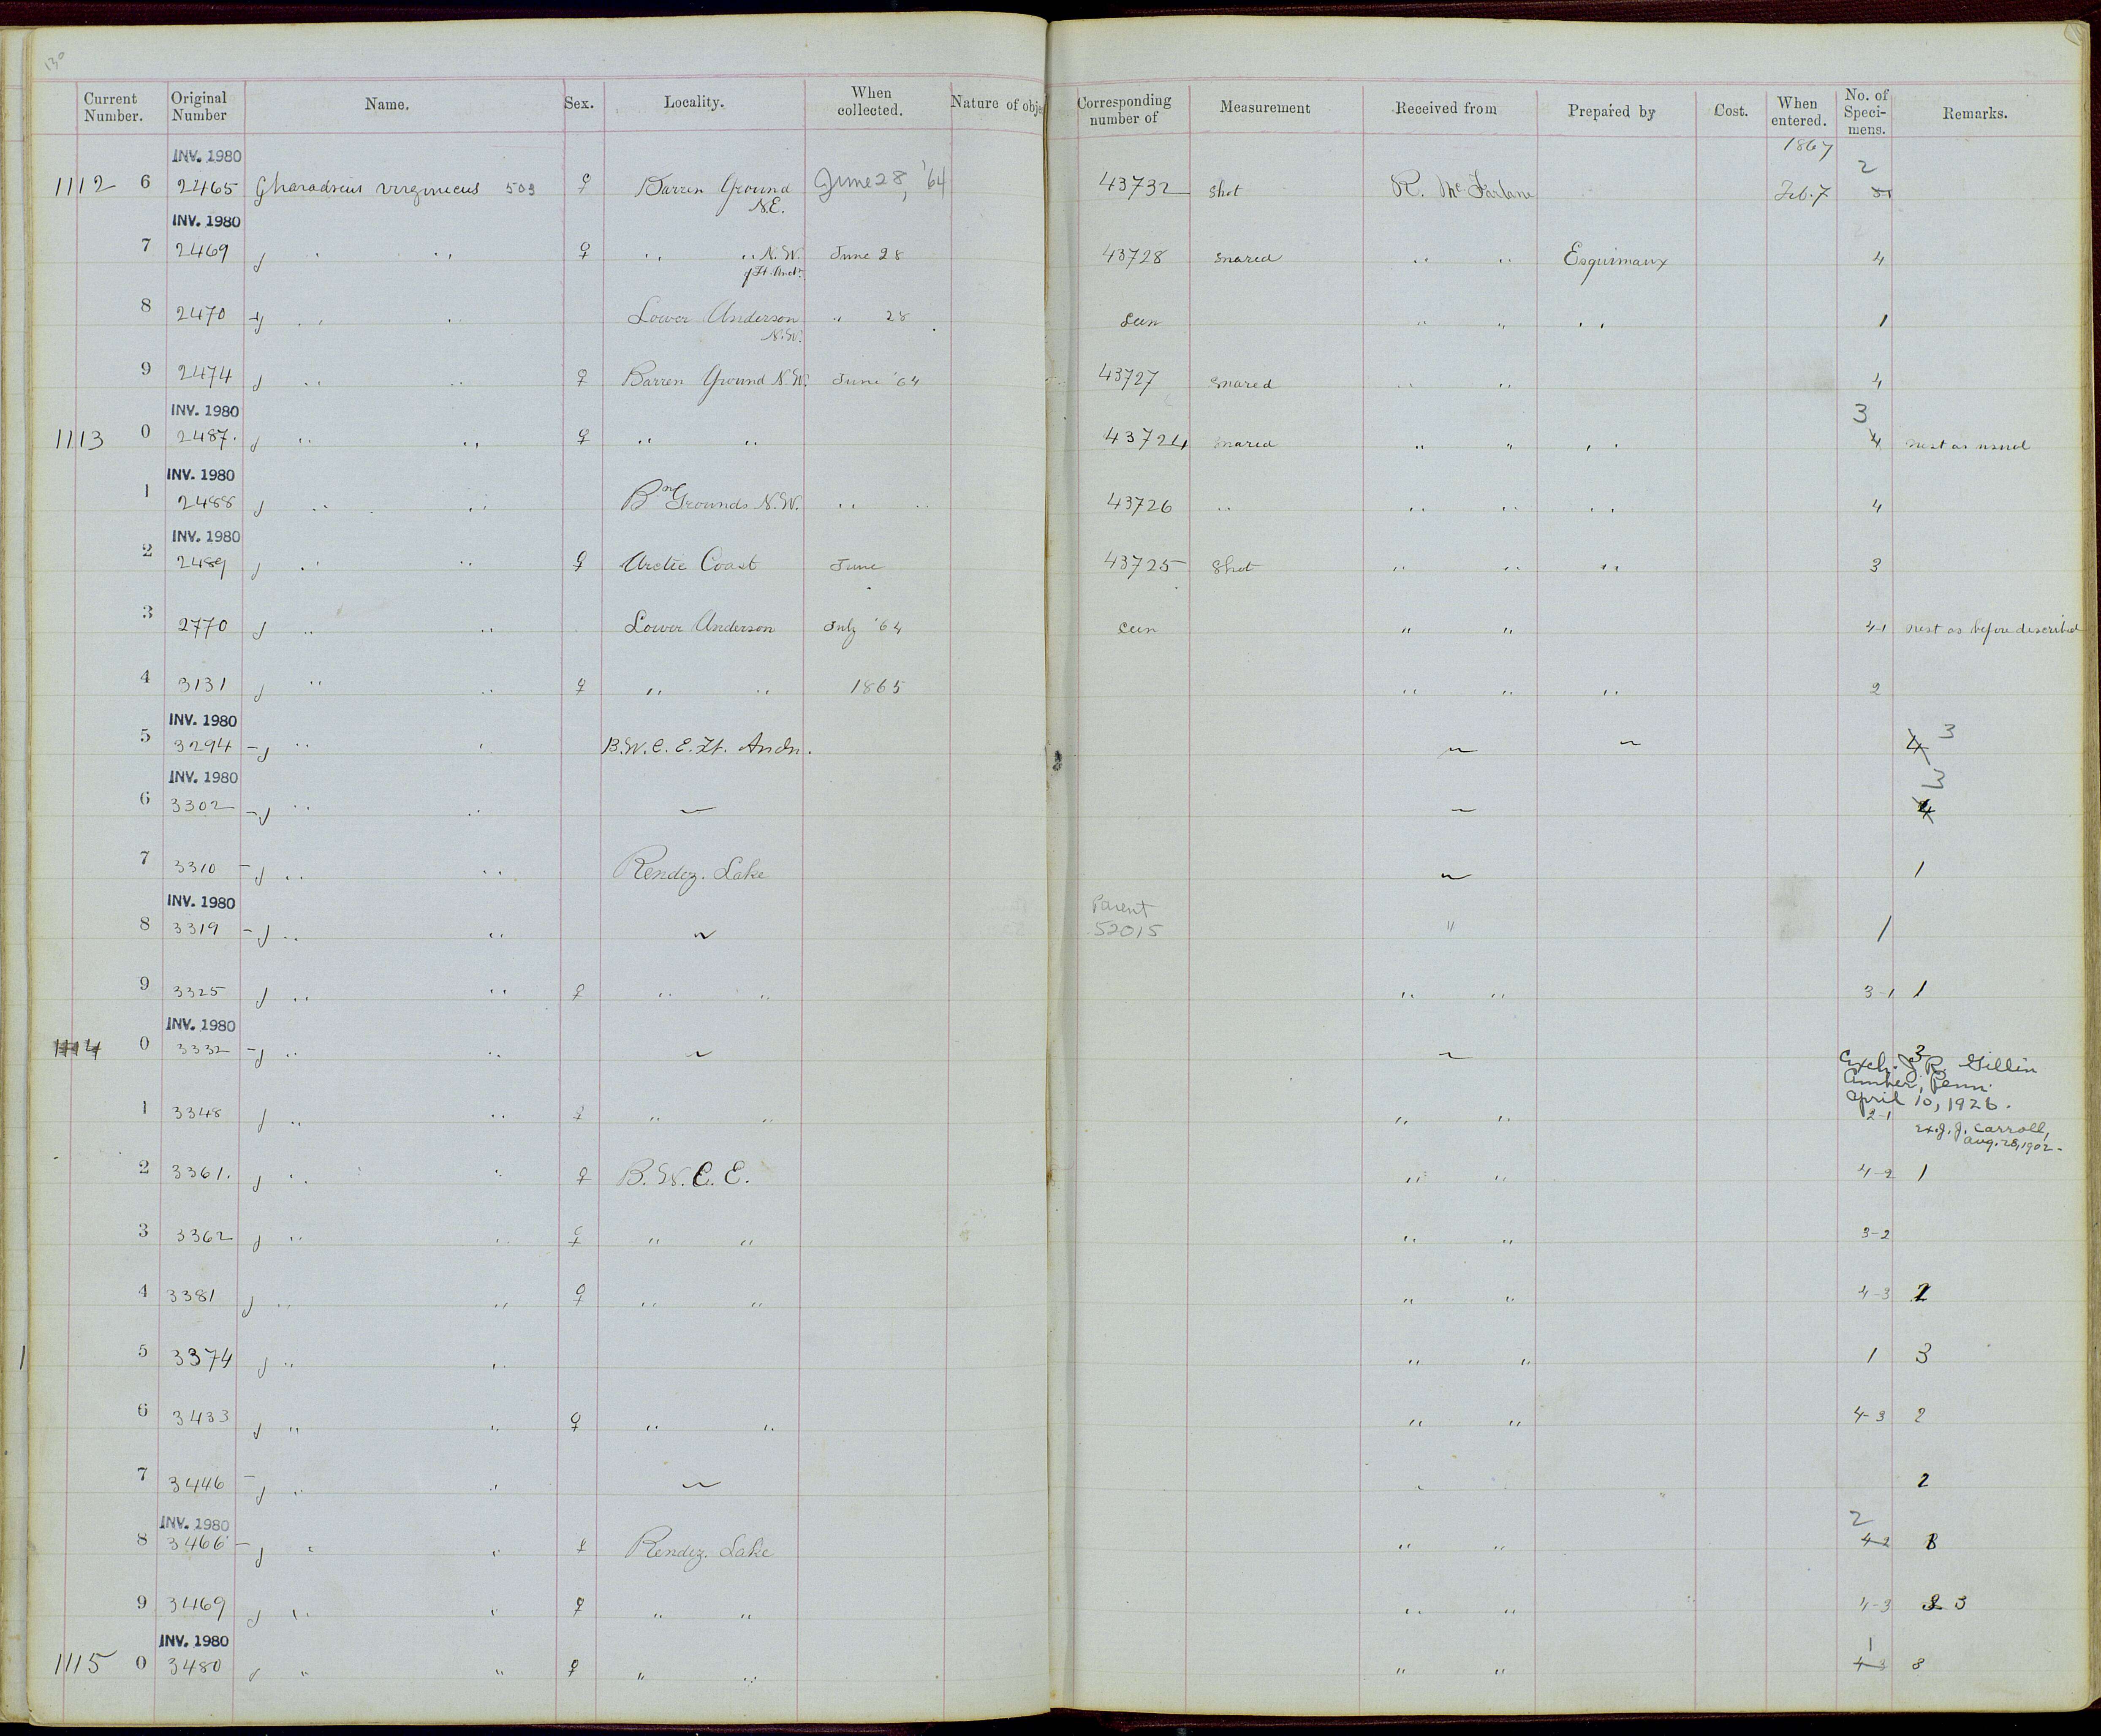 130
Current Number. Original Number Name. Sex. Locality. When collected. Nature of obje Corresponding number of Measurement Received from Prepared by Cost. When entered. No. of Speci-mens. Remarks.
1867
INV. 1980
1112 6 2465 Charadrius virginicus 503 ♀ Barren Ground N.E. June 28, '64 43732 Shot R. McFarlane Feb. 7 2
INV. 1980
7 2469 J " " ♀ " " N.W. of Ft. Andn. June 28 43728 Snared " " Esquimaux 4
8 2470 J " " Lower Anderson N.W. " 28 Seen " " " " 1
9 2474 J " " ♀ Barren Ground N.W. June '64 43727 Snared " " 4
INV. 1980
1113 0 2487. J " " ♀ " " 43724 Snared " " " " 3 4 nest as usual
INV. 1980
1 2488 J " " Bn Grounds N.W. " " 43726 " " " " " 4
INV. 1980
2 2489 J " " ♀ Arctic Coast June 43725 Shot " " " " 3
3 2770 J " " Lower Anderson July '64 Seen " " 4-1 nest as before described
4 3131 J " " ♀ " " 1865 " " " " 2
INV. 1980
5 3294 - J " " B.W.C.E. Ft. Andn. ~ ~ 4 3
INV. 1980
6 3302 - J " " ~ ~ 4 3
7 3310 - J " " Rendez. Lake ~ 1
INV. 1980
8 3319 - J " " ~ Parent 52015 " 1
9 3325 J " " ♀ " " " " 3-1 1
INV. 1980
1114 0 3332 - J " " ~ ~ 3
Exch. J. R. Gillin
Amber, Penn.
April 10, 1926.
1 3348 J " " ♀ " " " " 2-1
Ex. J. J. Carroll,
Aug. 28, 1902.
2 3361. J " " ♀ B.W.C.E. " " 4-2 1
3 3362 J " " ♀ " " " " 3-2
4 3381 J " " ♀ " " " " 4-3
5 3374 J " " " " 1 3
6 3433 J " " ♀ " " " " 4-3 2
7 3446 - J " " ~ 2
INV. 1980
8 3466 - J " " ♀ Rendez. Lake " " 2 4-2
9 3469 J " " ♀ " " " " 4-3 3
INV. 1980
1115 0 3480 J " " ♀ " " " " 1 4-3 3